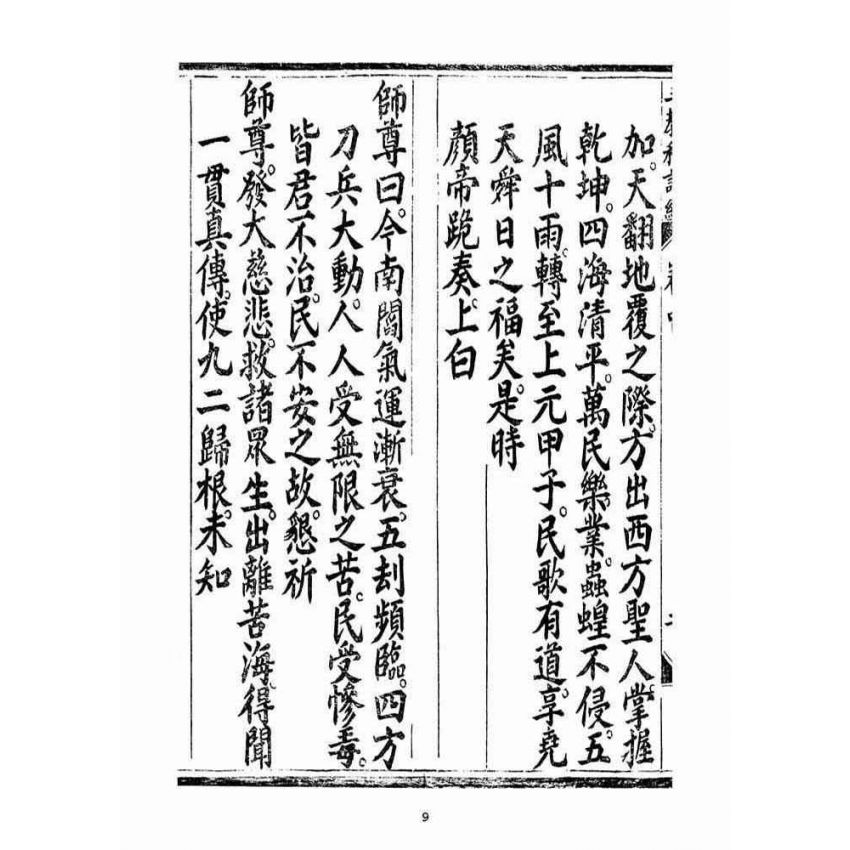 加。天翻地覆之際。方出西方聖人。掌握
乾坤。四海清平。萬民樂業。蟲蝗不侵。五
風十雨。轉至上元甲子。民歌有道。享堯
天舜日之福矣。是時
顏帝跪奏。上白
師尊曰。今南閻氣運漸衰。五刦頻臨。四方
刀兵大動。人人受無限之苦。民受慘毒。
皆君不治。民不安之故。懇祈
師尊。發大慈悲。救諸眾生。出離苦海。得聞
一貫真傳。使九二歸根。未知
9